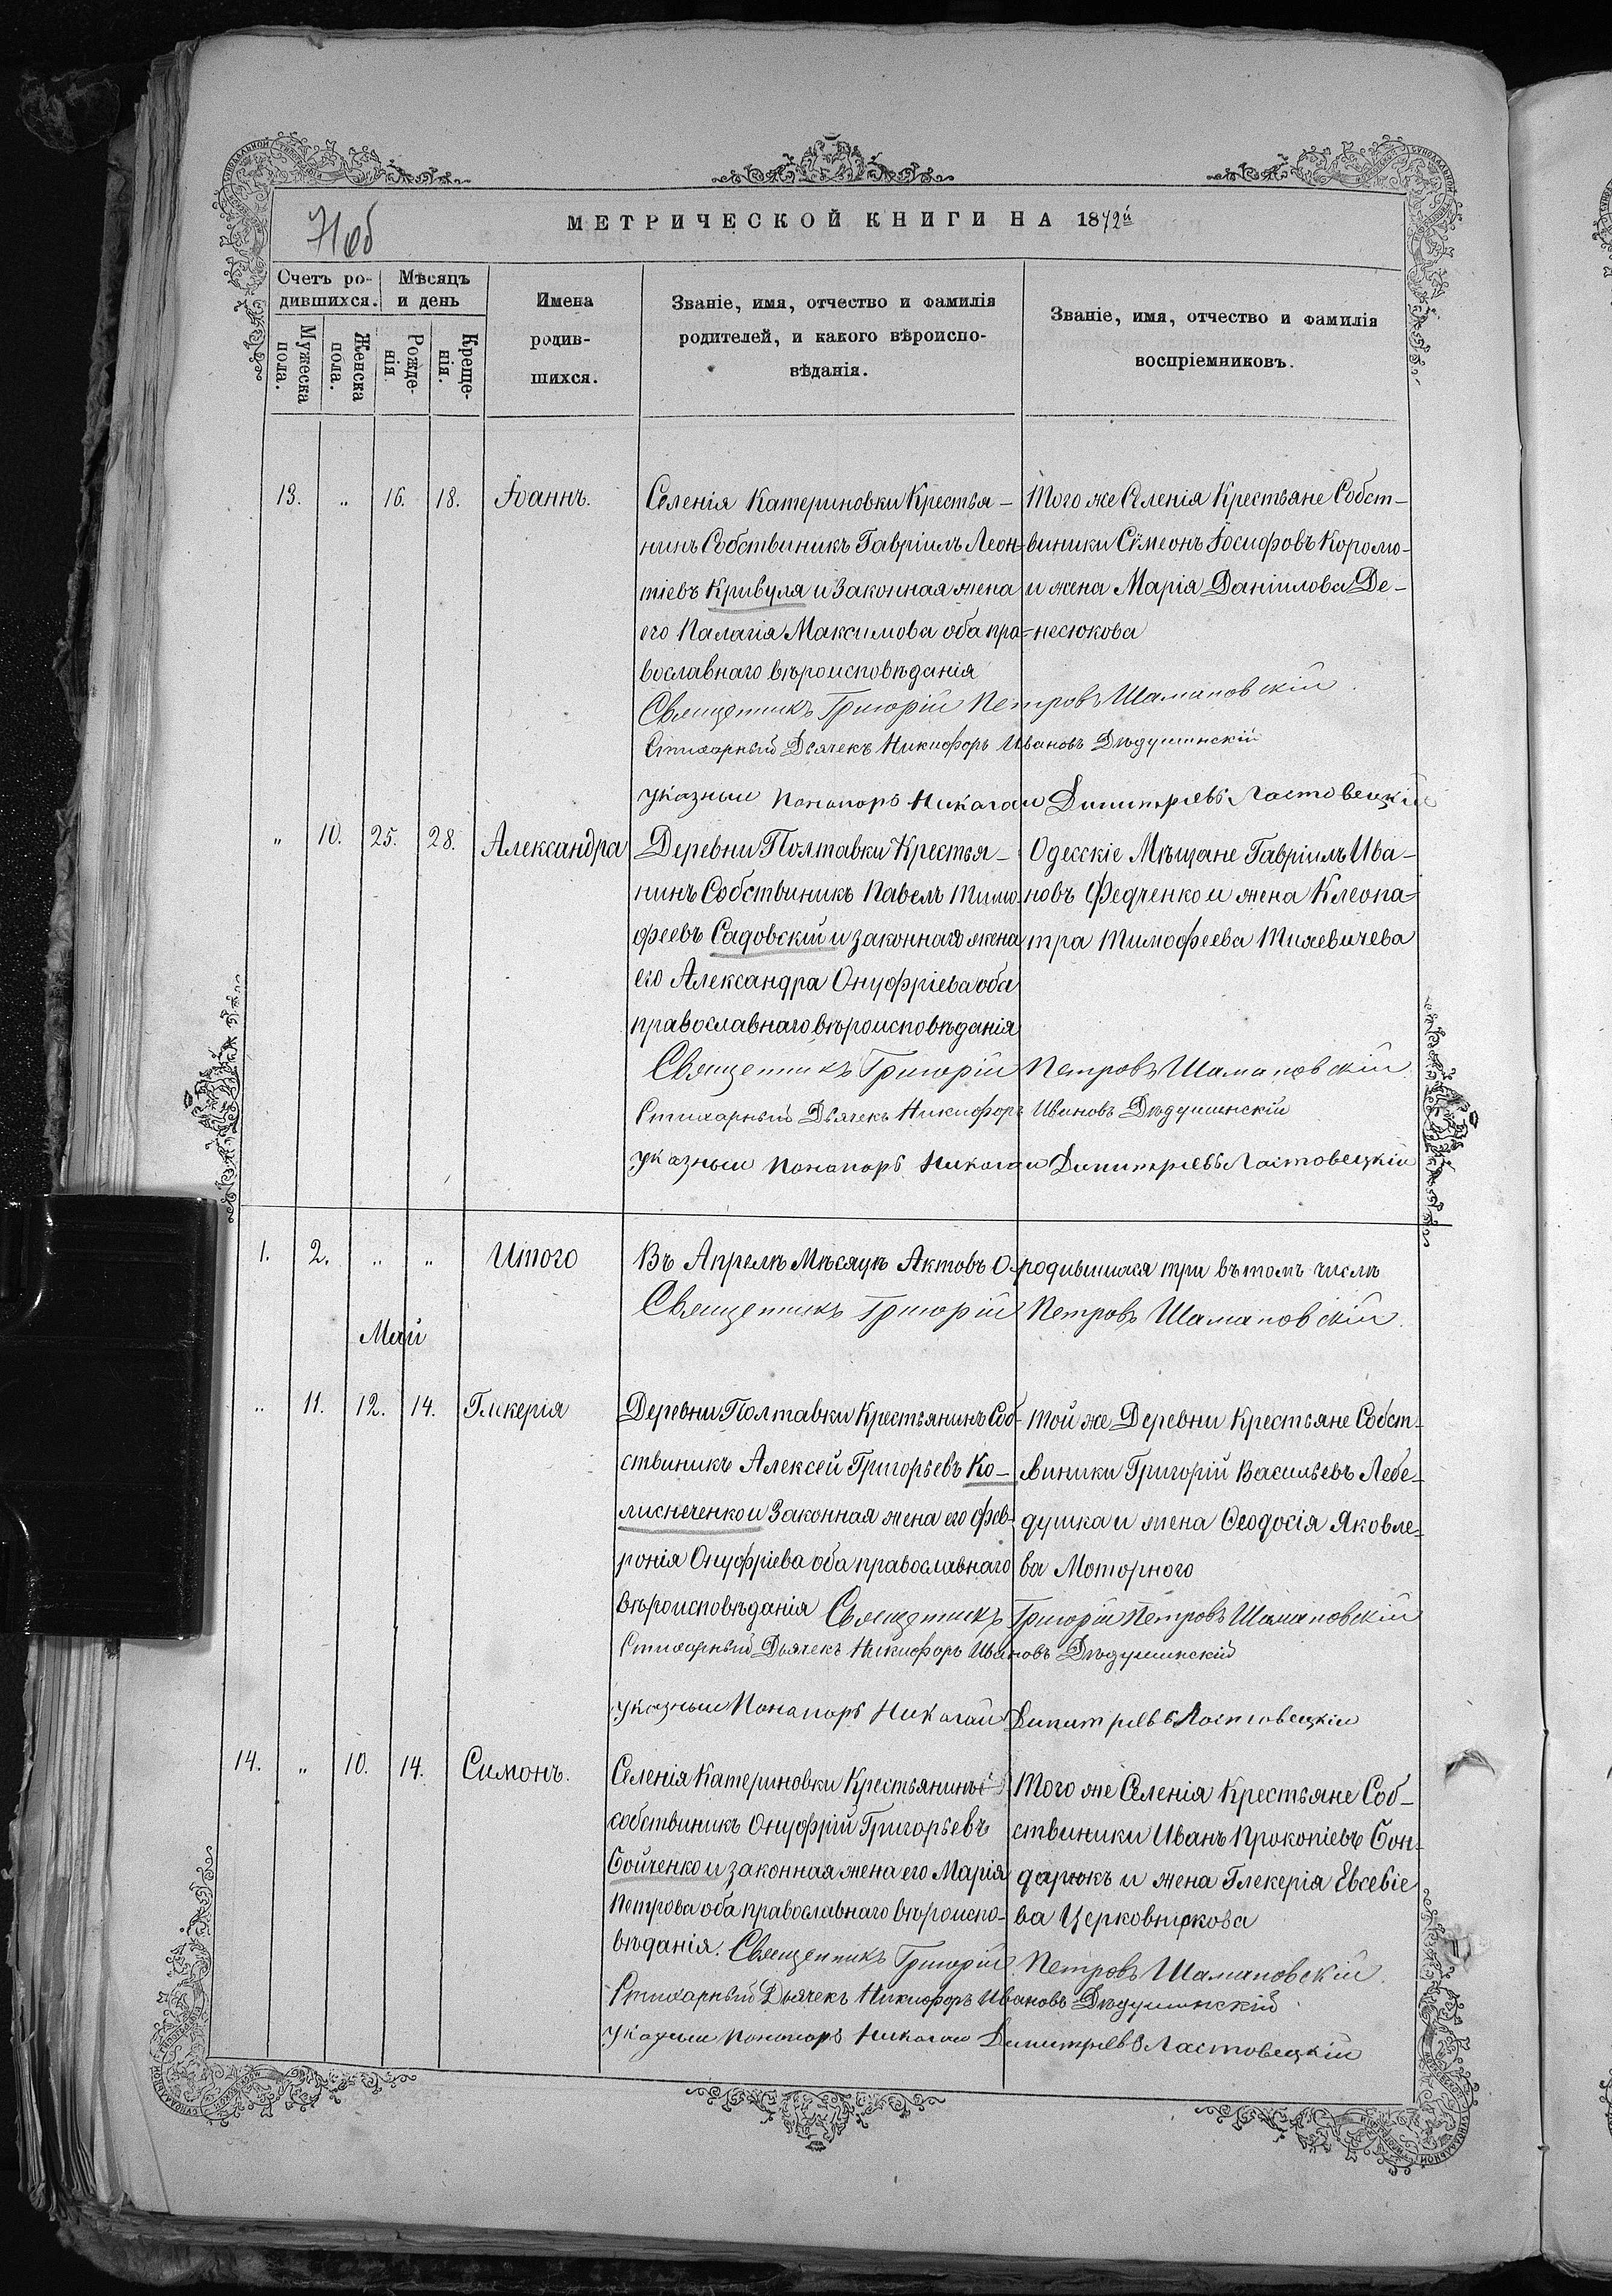 МЕТРИЧЕСКОЙ КНИГИ НА 1872й
71об
Счетъ родившихся.
Мѣсяцъ и день
Мужеска пола.
Женска пола.
Рожденія
Крещенія.
Имена
родив-
шихся.
Званіе, имя, отчество и фамилія
родителей, и какого вѣроиспо-
вѣданія.
Званіе, имя, отчество и фамилія
воспріемниковъ.
13. „ 16. 18. Іоаннъ.
Селенія Катериновки Крестья-
нинъ Собствиникъ Гавріилъ Леон-
тіевъ Кривуля и Законная жена
его Палагія Максимова оба пра-
вославнаго вѣроисповѣданія
Того же Селенія Крестьяне Собст-
виники Сѵмеонъ Іосифовъ Коромо-
и жена Марія Даніилова Де-
несюкова
Священникъ Григорій Петровъ Шамановскій
Стихарный Дьячекъ Никифоръ Ивановъ Дѣдушинскій
указный Понамарь Николай Димитріевъ Ластовецкій
„ 10. 25. 28. Александра
Деревни Полтавки Крестья-
нинъ Собствиникъ Павелъ Тимо-
феевъ Садовскій и законнаго жена
его Александра Онуфріева оба
православнаго вѣроисповѣданія
Одесскіе Мѣщане Гавріилъ Ива-
новъ Федченко и жена Клеопа-
тра Тимофеева
Священникъ Григорій Петровъ Шамановскій
Стихарный Дьячекъ Никифоръ Ивановъ Дѣдушинскій
указный Понамарь Николай Димитріевъ Ластовецкій
1. 2. „ „ Итого
Въ Апрелѣ Мѣсяцѣ Актовъ О родившихся три въ томъ числѣ
Священникъ Григорій Петровъ Шамановскій
Май
„ 11. 12. 14. Гликерія
Деревни Полтавки Крестьянинъ Соб-
ствиникъ Алексей Григорьевъ Ко-
лисниченко и Законная жена его Фев-
ронія Онуфріева оба православнаго
вѣроисповѣданія
Той же Деревни Крестьяне Собст-
виники Григорій Васильевъ Лебе-
душка и жена Ѳеодосія Яковле-
ва Моторного
Священникъ Григорій Петровъ Шамановскій
Стихарный Дьячекъ Никифоръ Ивановъ Дѣдушинскій
указный Понамарь Николай Димитріевъ Ластовецкій
14. „ 10. 14. Симонъ.
Селенія Катериновки Крестьянинъ
собствиникъ Онуфрій Григорьевъ
Бойченко и законная жена его Марія
Петрова оба православнаго вѣроиспо-
вѣданія.
Того же Селенія Крестьяне Соб-
ствиники Иванъ Прокопіевъ Бон-
дарюкъ и жена Глекерія Евсевіе
ва Церковнюкова
Священникъ Григорій Петровъ Шамановскій
Стихарный Дьячекъ Никифоръ Ивановъ Дѣдушинскій
указный Понамарь Николай Димитріевъ Ластовецкій